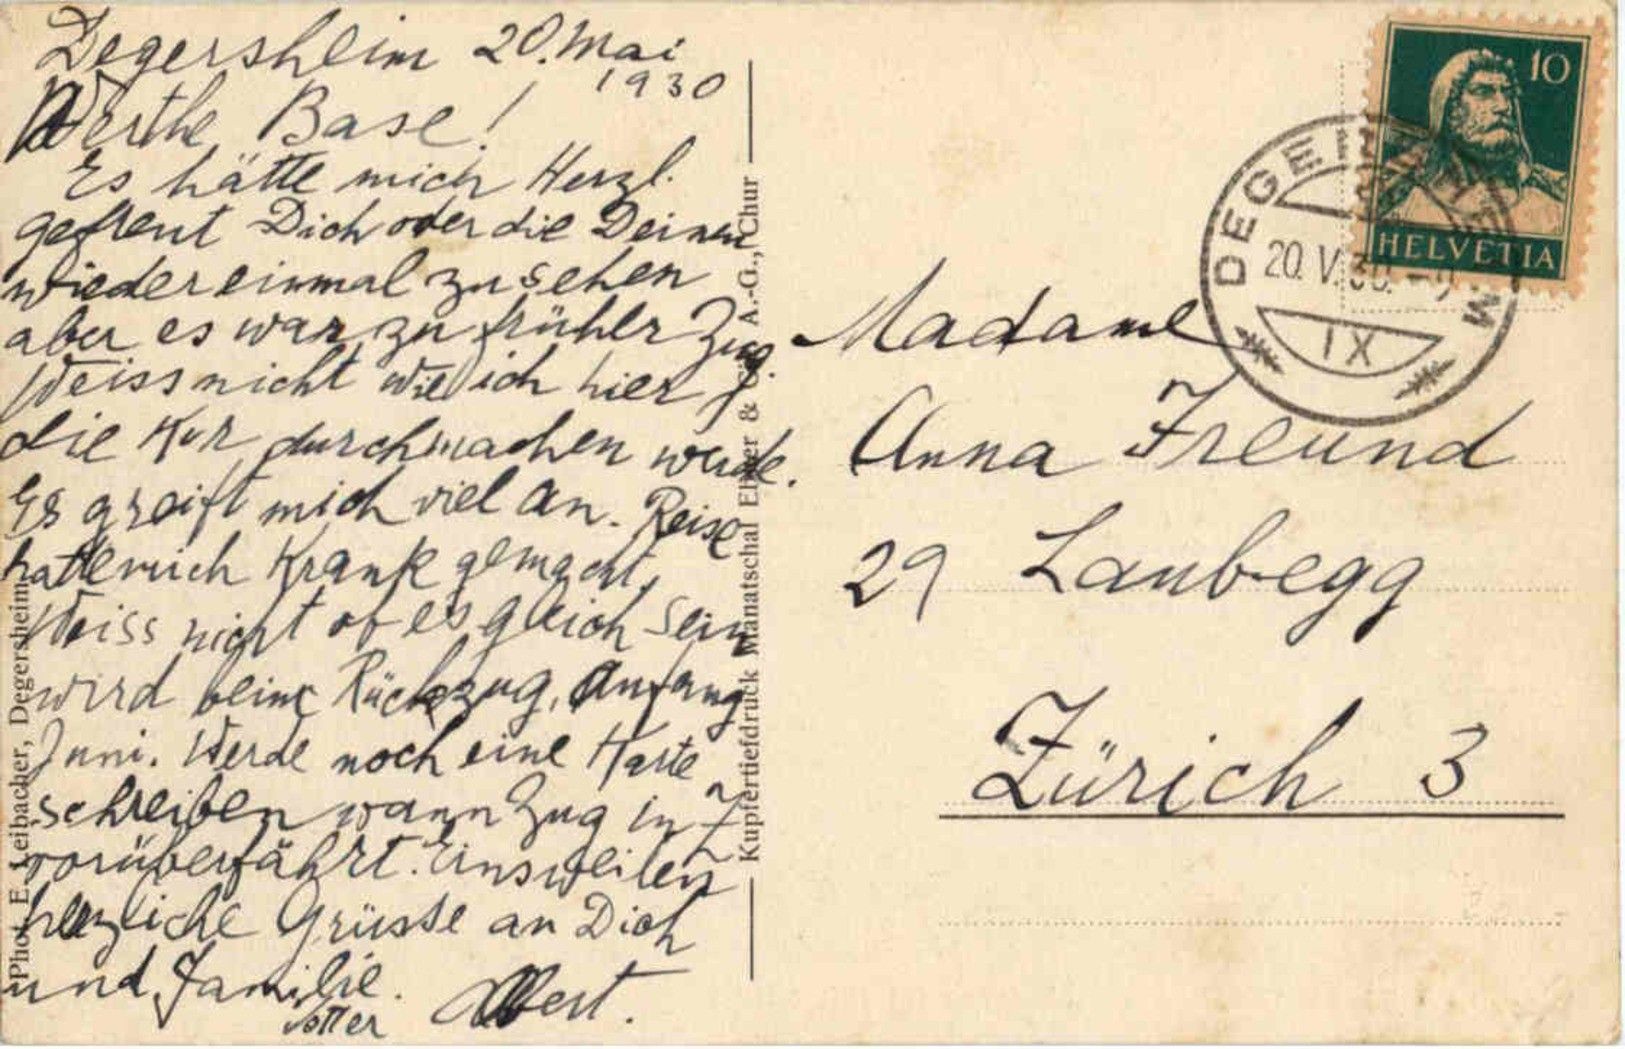 Degersheim 20. Mai
1930
Werthe Base!
Es hätte mich Herzl.
gefreut Dich oder die Deinen
wiedereinmal zu sehen
aber es war zu früher Zug.
Weiss nicht wie ich hier
die Kur durchmachen werde.
Es greift mich viel an. Reise
hatte mich Krank gemacht,
Weiss nicht ob es gleich sein
wird beim Rückzug, Anfang
Juni. Werde noch eine Karte
schreiben wann Zug in Z
vorüberfährt. Einsweilen
herzliche Grüsse an Dich
und Familie.
Vetter Albert.
Phot. E. Leibacher, Degersheim
Kupfertiefdruck Manatschal Ebner & Cie. A.-G., Chur
10
HELVETIA
DEGERSHEIM
20. V. 30.
IX
Madame
Anna Freund
29 Laubegg
Zürich 3